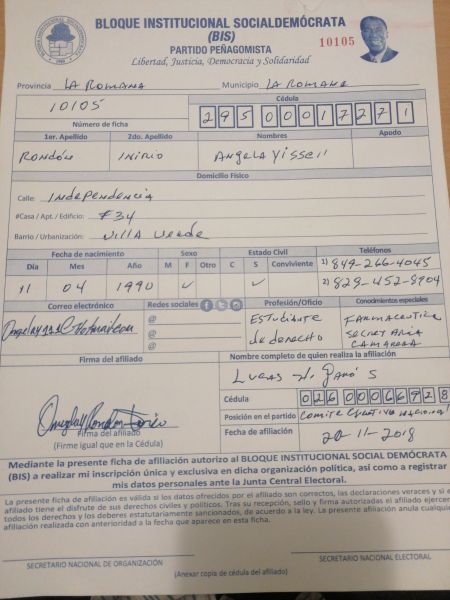 BLOQUE INSTITUCIONAL SOCIALDEMÓCRATA
(BIS)
PARTIDO PEÑAGOMISTA
Libertad, Justicia, Democracia y Solidaridad
10105
Provincia LA ROMANA Municipio LA ROMANA
10105
Número de ficha
Cédula
295 0001727 1
1er. Apellido 2do. Apellido Nombres Apodo
RONDÓN INIRIO ANGELA YISSELL
Domicilio Físico
Calle: Independencia
#Casa / Apt. / Edificio: #34
Barrio / Urbanización: Villa Verde
Fecha de nacimiento Sexo Estado Civil Teléfonos
Día Mes Año M F Otro C S Conviviente
11 04 1990 ✓ ✓
1) 849-266-4045
2) 829-452-8904
Correo electrónico Redes sociales Profesión/Oficio Conocimientos especiales
@
@
@
ESTUDIANTE
de derecho
FARMACEUTICA
SECRETARIA
CAMARERA
Firma del afiliado
Firma del afiliado
(Firme igual que en la Cédula)
Nombre completo de quien realiza la afiliación
Lucas
Cédula 026 0006692 8
Posición en el partido Comite Ejecutivo nacional
Fecha de afiliación 20-11-2018
Mediante la presente ficha de afiliación autorizo al BLOQUE INSTITUCIONAL SOCIAL DEMÓCRATA
(BIS) a realizar mi inscripción única y exclusiva en dicha organización política, así como a registrar
mis datos personales ante la Junta Central Electoral.
La presente ficha de afiliación es válida si los datos ofrecidos por el afiliado son correctos, las declaraciones veraces y si el
afiliado tiene el disfrute de sus derechos civiles y políticos. Tras su recepción, sello y firma autorizadas el afiliado ejercerá
todos los derechos y los deberes estatutariamente sancionados, de acuerdo a la ley. La presente afiliación anula cualquier
afiliación realizada con anterioridad a la fecha que aparece en esta ficha.
SECRETARIO NACIONAL DE ORGANIZACIÓN SECRETARIO NACIONAL ELECTORAL
(Anexar copia de cédula del afiliado)